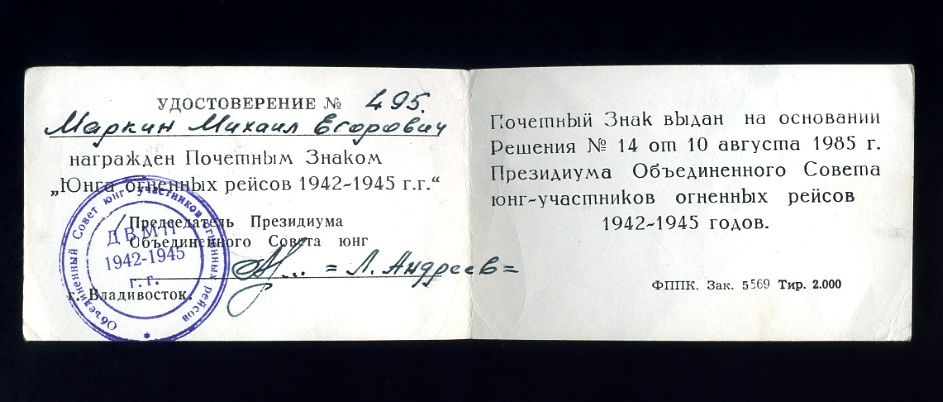 УДОСТОВЕРЕНИЕ № 495.
Маркин Михаил Егорович
награжден Почетным Знаком
„Юнга огненных рейсов 1942-1945 г.г.“
Председатель Президиума
Объединенного Совета юнг
= Л. Андреев =
г. Владивосток.
Объединенный Совет юнг участников огненных рейсов
ДВМП
1942-1945
г.г.
Почетный Знак выдан на основании
Решения № 14 от 10 августа 1985 г.
Президиума Объединенного Совета
юнг-участников огненных рейсов
1942-1945 годов.
ФППК. Зак. 5569 Тир. 2.000